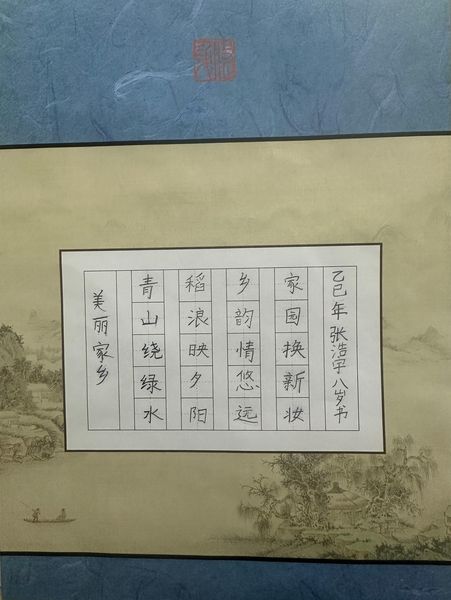 美丽家乡
青山绕绿水
稻浪映夕阳
乡韵情悠远
家园换新妆
乙巳年 张浩宇 八岁书